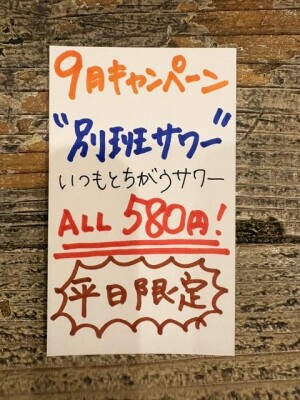 9月キャンペーン
"別班サワー"
いつもとちがうサワー
ALL 580円!
平日限定